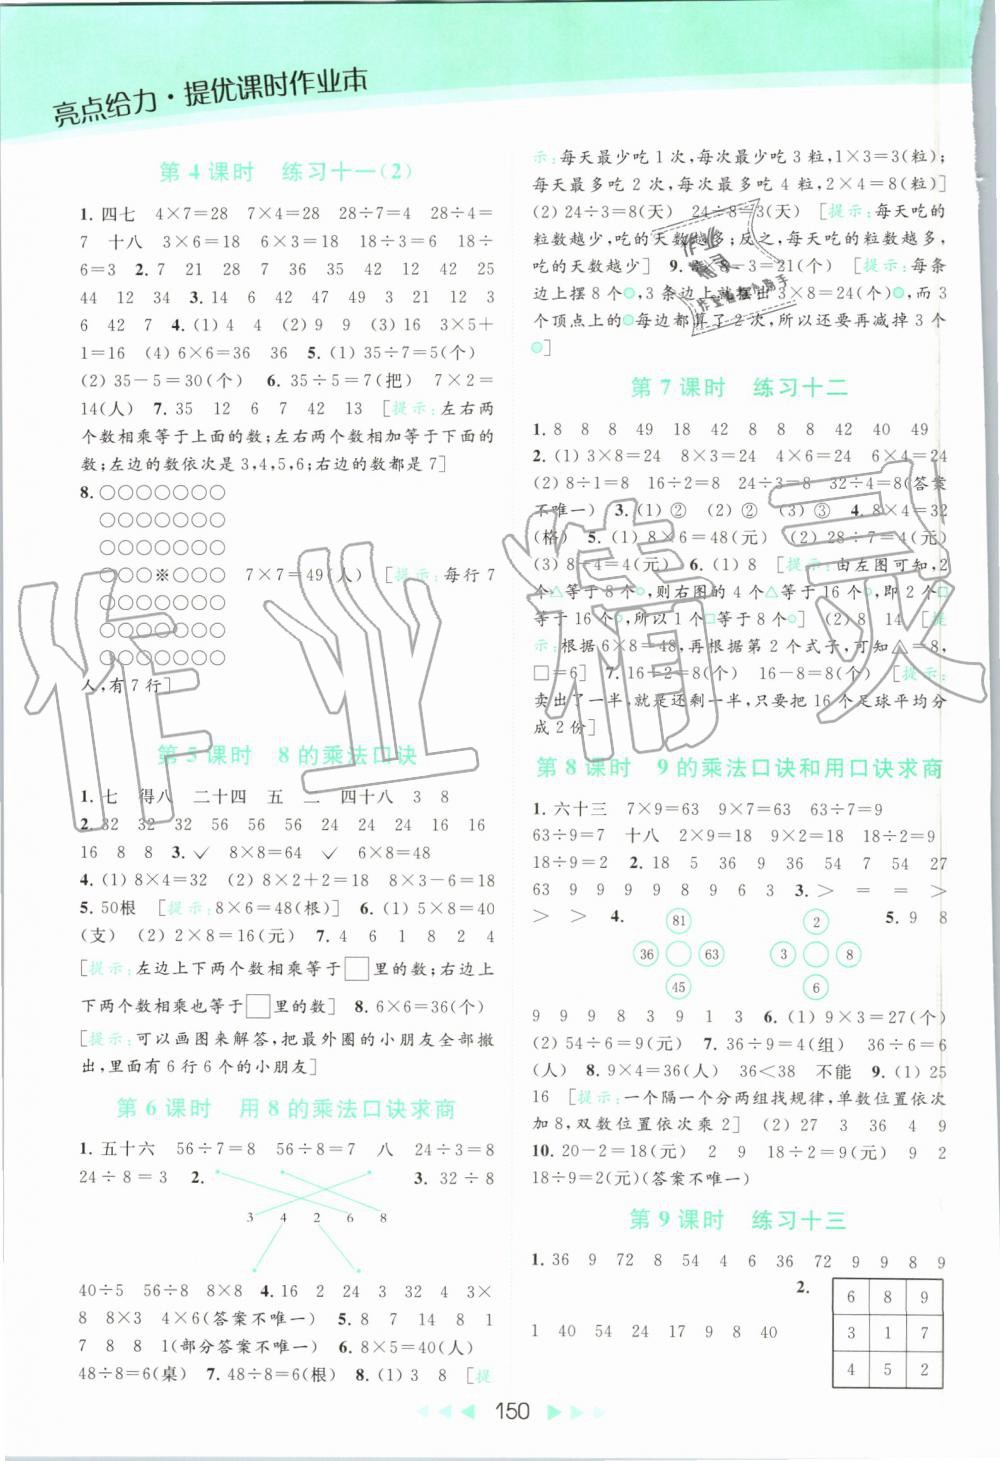 亮点给力·提优课时作业本
第4课时 练习十一(2)
1. 四七 4×7=28 7×4=28 28÷7=4 28÷4=
7 十八 3×6=18 6×3=18 18÷3=6 18÷
6=3 2. 7 21 28 7 36 35 42 12 42 25
44 12 34 3. 14 6 42 47 49 3 21 12 3
6 42 7 4. (1) 4 (2) 9 9 (3) 16 3×5+
1=16 (4) 6×6=36 36 5. (1) 35÷7=5(个)
(2) 35-5=30(个) 6. 35÷5=7(把) 7×2=
14(人) 7. 35 12 6 7 42 13 [提示:左右两
个数相乘等于上面的数;左右两个数相加等于下面的
数;左边的数依次是3,4,5,6;右边的数都是7]
8. ○○○○○○○
○○○○○○○
○○○○○○○
○○○※○○○ 7×7=49(人) [提示:每行7
○○○○○○○
○○○○○○○
○○○○○○○
人,有7行]
第5课时 8的乘法口诀
1. 七 得八 二十四 五 二 四十八 3 8
2. 32 32 32 56 56 56 24 24 24 16 16
16 8 8 3. ✓ 8×8=64 ✓ 6×8=48
4. (1) 8×4=32 (2) 8×2+2=18 8×2+2=18
5. 50根 [提示:8×6=48(根)] 6. (1) 5×8=40
(支) (2) 2×8=16(元) 7. 4 6 1 8 2 4
[提示:左边上下两个数相乘等于□里的数;右边上
下两个数相乘也等于□里的数] 8. 6×6=36(个)
[提示:可以画图来解答,把最外圈的小朋友全部撤
出,里面有6行6个的小朋友]
第6课时 用8的乘法口诀求商
1. 五十六 56÷7=8 56÷8=7 八 24÷3=8
24÷8=3 2. 3. 32÷8
3 4 2 6 8
40÷5 56÷8 8×8 4. 16 2 24 3 4 3×
8 8×3 4×6(答案不唯一) 5. 8 7 14 8 1
7 8 8 1(部分答案不唯一) 6. 8×5=40(人)
48÷8=6(桌) 7. 48÷8=6(根) 8. (1) 3 8 [提
示:每天最少吃1次,每次最少吃3粒,1×3=3(粒);
每天最多吃2次,每次最多吃4粒,2×4=8(粒)]
(2) 24÷3=8(天) 24÷8=3(天) [提示:每天吃的
粒数越少,吃的天数越多;反之,每天吃的粒数越多,
吃的天数越少] 9. 8-3=21(个) [提示:每条
边上摆8个○,3条边上就摆出3×8=24(个)○,而3
个顶点上的○每边都算了2次,所以还要再减掉3个
○]
第7课时 练习十二
1. 8 8 8 49 18 42 8 8 8 42 40 49
2. (1) 3×8=24 8×3=24 4×6=24 6×4=24
(2) 8÷1=8 16÷2=8 24÷3=8 32÷4=8(答案
不唯一) 3. (1) ② (2) ② (3) ③ 4. 8×4=32
(格) 5. (1) 8×6=48(元) (2) 28÷7=4(元)
(3) 8-4=4(元) 6. (1) 8 [提示:由左图可知,2
个△等于8个○,则右图的4个△等于16个○,即2个□
等于16个○,所以1个□等于8个○] (2) 8 14 [提
示:根据6×8=48,再根据第2个式子,可知△=8,
□=6] 7. 16÷2=8(个) 16-8=8(个) [提示:
卖出了一半,就是还剩一半,只要把16个足球平均分
成2份]
第8课时 9的乘法口诀和用口诀求商
1. 六十三 7×9=63 9×7=63 63÷7=9
63÷9=7 十八 2×9=18 9×2=18 18÷2=9
18÷9=2 2. 18 5 36 9 36 54 7 54 27
63 9 9 9 9 8 9 6 3 3. > = = >
> > 4. 81 36 63 45 2 3 8 6 5. 9 8
9 9 9 8 3 9 1 3 6. (1) 9×3=27(个)
(2) 54÷6=9(元) 7. 36÷9=4(组) 36÷6=6
(人) 8. 9×4=36(人) 36<38 不能 9. (1) 25
16 [提示:一个隔一个分两组找规律,单数位置依次
加8,双数位置依次乘2] (2) 27 3 36 4 9
10. 20-2=18(元) 2 9 18÷2=9(元) 9 2
18÷9=2(元)(答案不唯一)
第9课时 练习十三
1. 36 9 72 8 54 4 6 36 72 9 9 8 9
1 40 54 24 17 9 8 40
2. 6 8 9
3 1 7
4 5 2
150
作业精灵